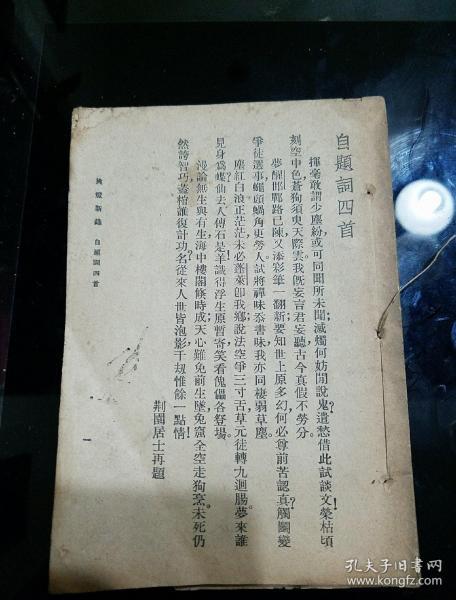 自題詞四首
揮毫敢謂少塵紛或可同聞所未聞滅燭何妨閒說鬼遣愁借此試談文榮枯頃
刻空中色蒼狗須臾天際雲我既妄言君妄聽古今真假不勞分
夢醒邯鄲路已陳又添彩筆一翻新要知世上原多幻何必尊前苦認真觸闘變
爭徒選事蠅頭蝸角更勞人試將禪味叅書味我亦同棲弱草塵
塵紅白浪正茫茫未必蓬萊卽我鄕說法空爭三寸舌草元徒轉九迴腸夢來誰
見身爲蝶仙去人傳石是羊識得浮生原暫寄笑看傀儡各登場
漫論無生與有生海中樓閣倐時成天心難免前生墜兔窟全空走狗烹未死仍
然誇智巧蓋棺誰復計功名從來人世皆泡影千刼惟餘一點情
荆園居士再題
挑燈新錄 自題詞四首
一
孔夫子旧书网
www.kongfz.com